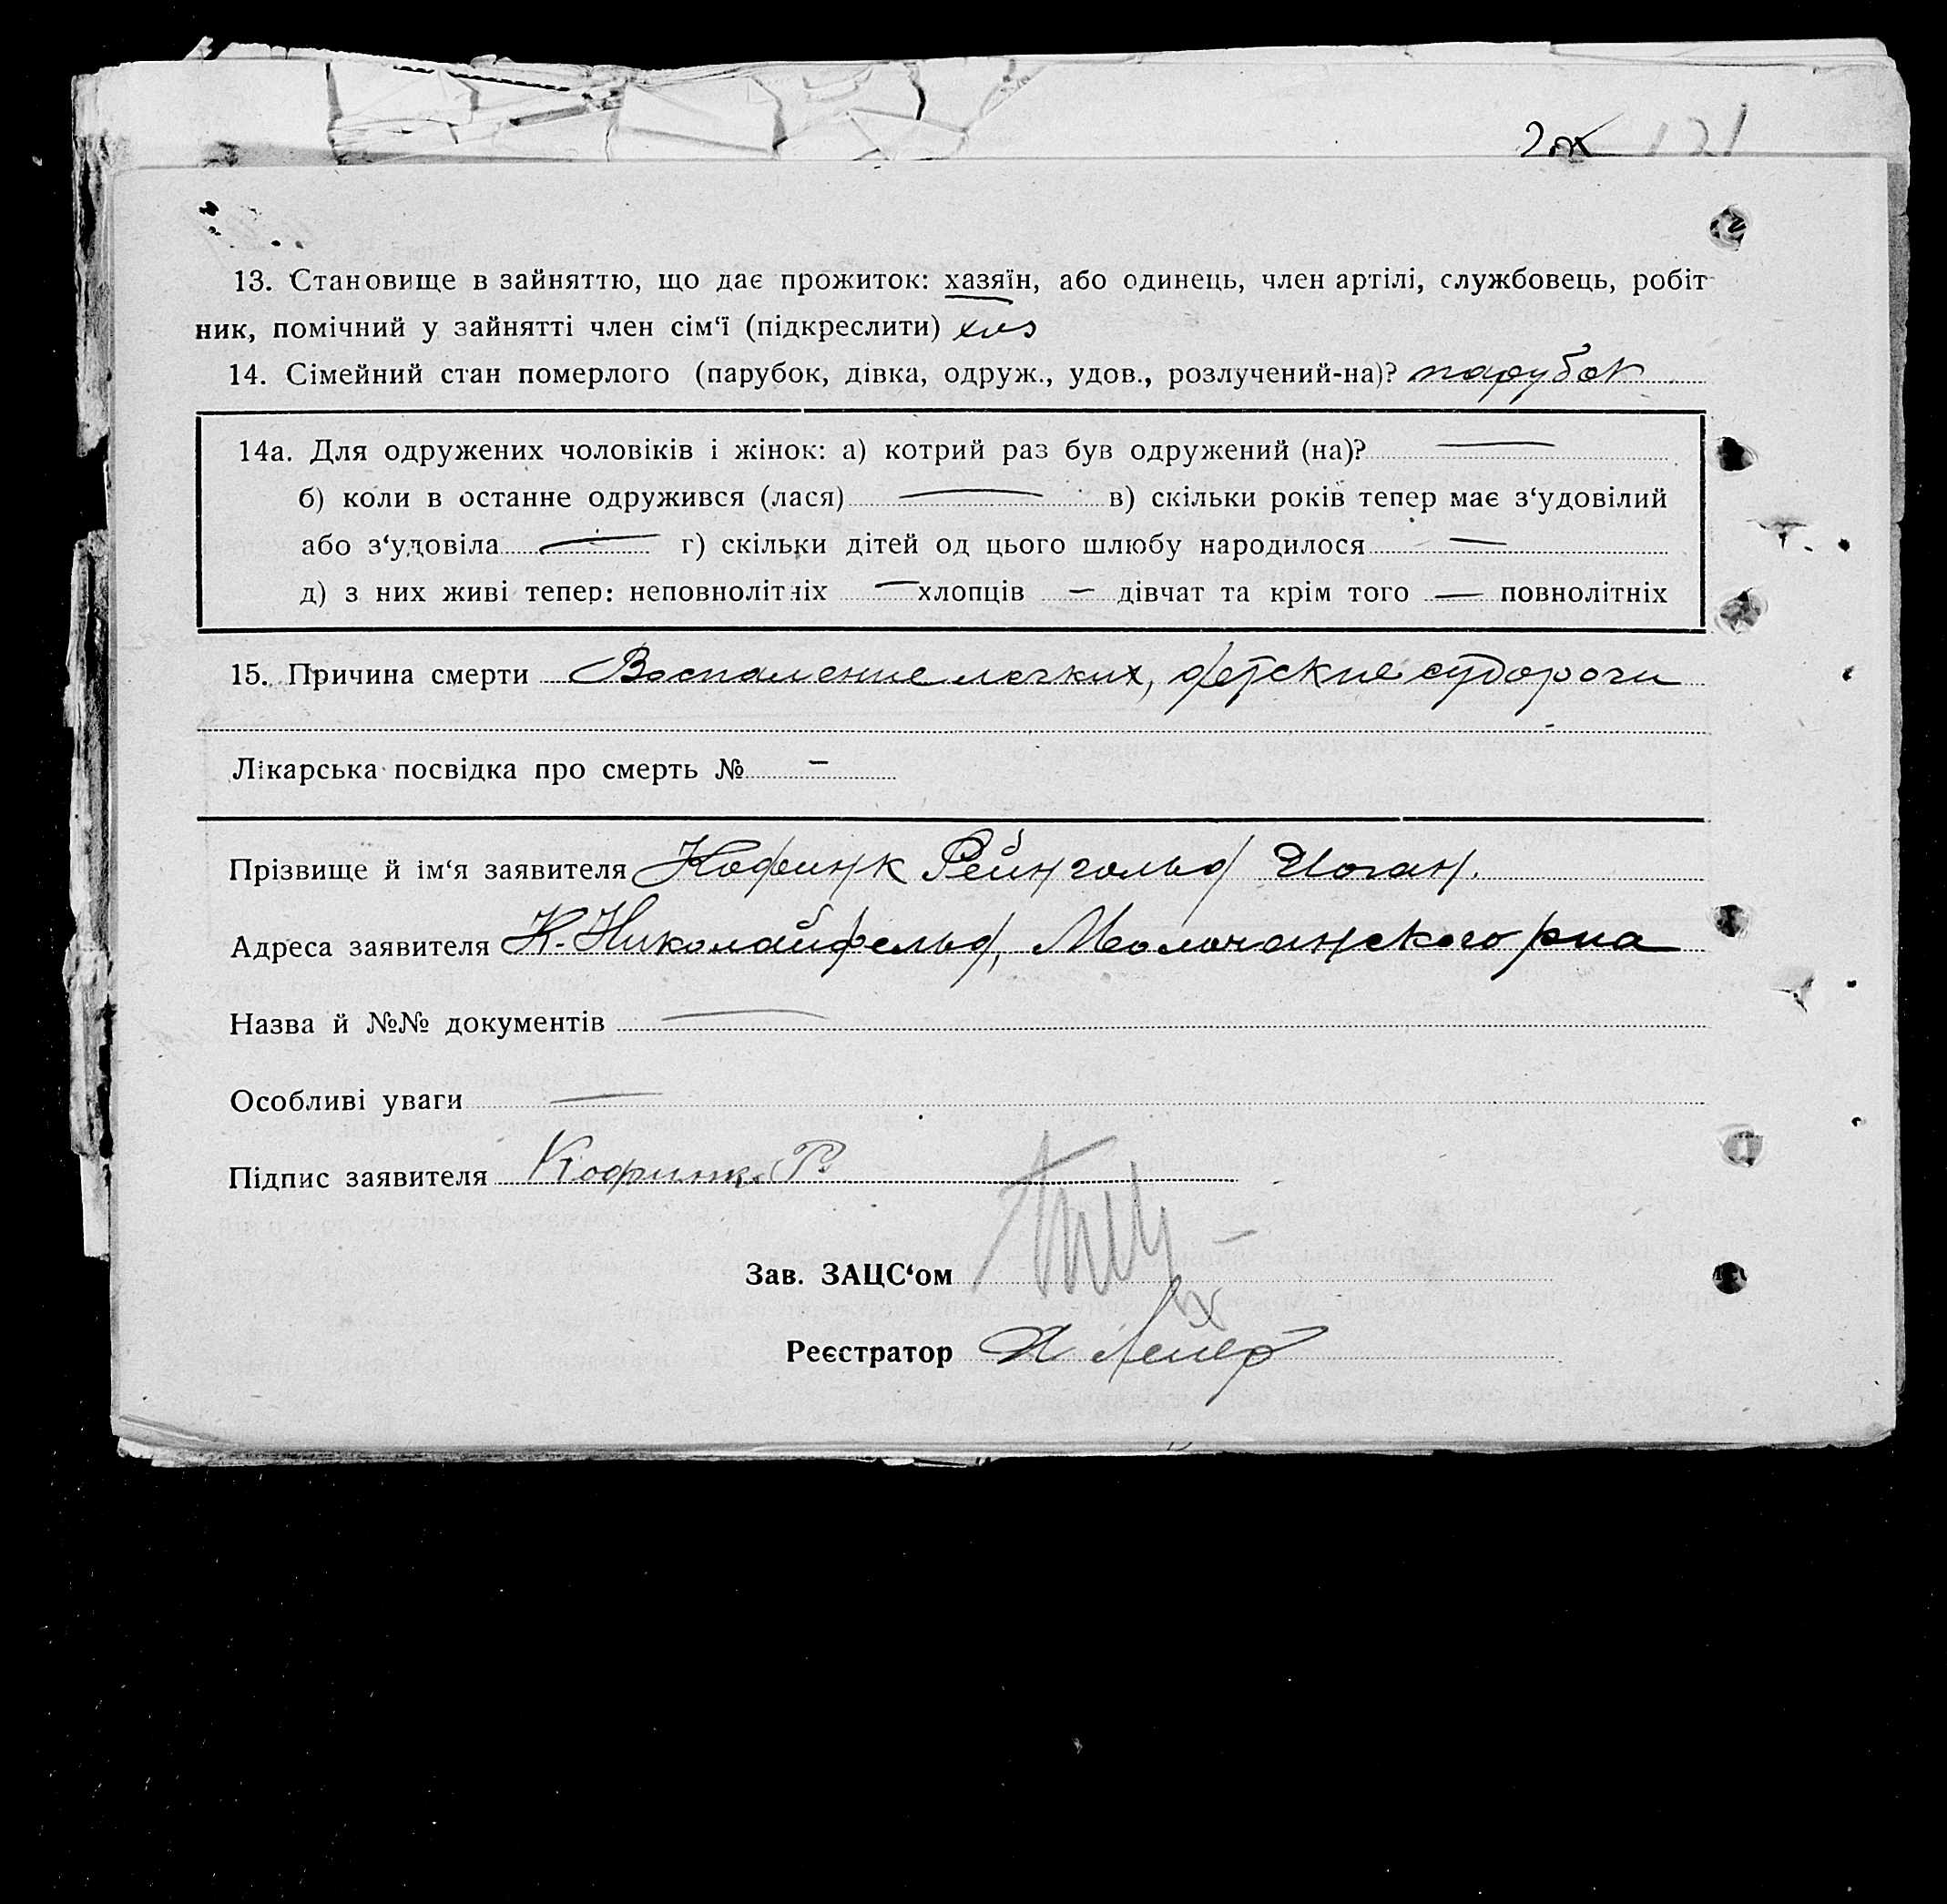 121
13. Становище в зайняттю, що дає прожиток: хазяїн, або одинець, член артілі, службовець, робіт-
ник, помічний у зайнятті член сім‘ї (підкреслити)
14. Сімейний стан померлого (парубок, дівка, одруж., удов., розлучений-на)? парубок
14а. Для одружених чоловіків і жінок: а) котрий раз був одружений (на)? —
б) коли в останне одружився (лася) — в) скільки років тепер має з‘удовілий
або з‘удовіла — г) скільки дітей од цього шлюбу народилося —
д) з них живі тепер: неповнолітніх — хлопців — дівчат та крім того — повнолітніх
15. Причина смерти Воспаление легких, детские судороги
Лікарська посвідка про смерть № —
Прізвище й ім‘я заявителя Кофинк Рейнгольд Иоган.
Адреса заявителя К. Николайфельд, Молочанского рна
Назва й №№ документів —
Особливі уваги —
Підпис заявителя Кофинк Р
Зав. ЗАЦС‘ом
Реєстратор